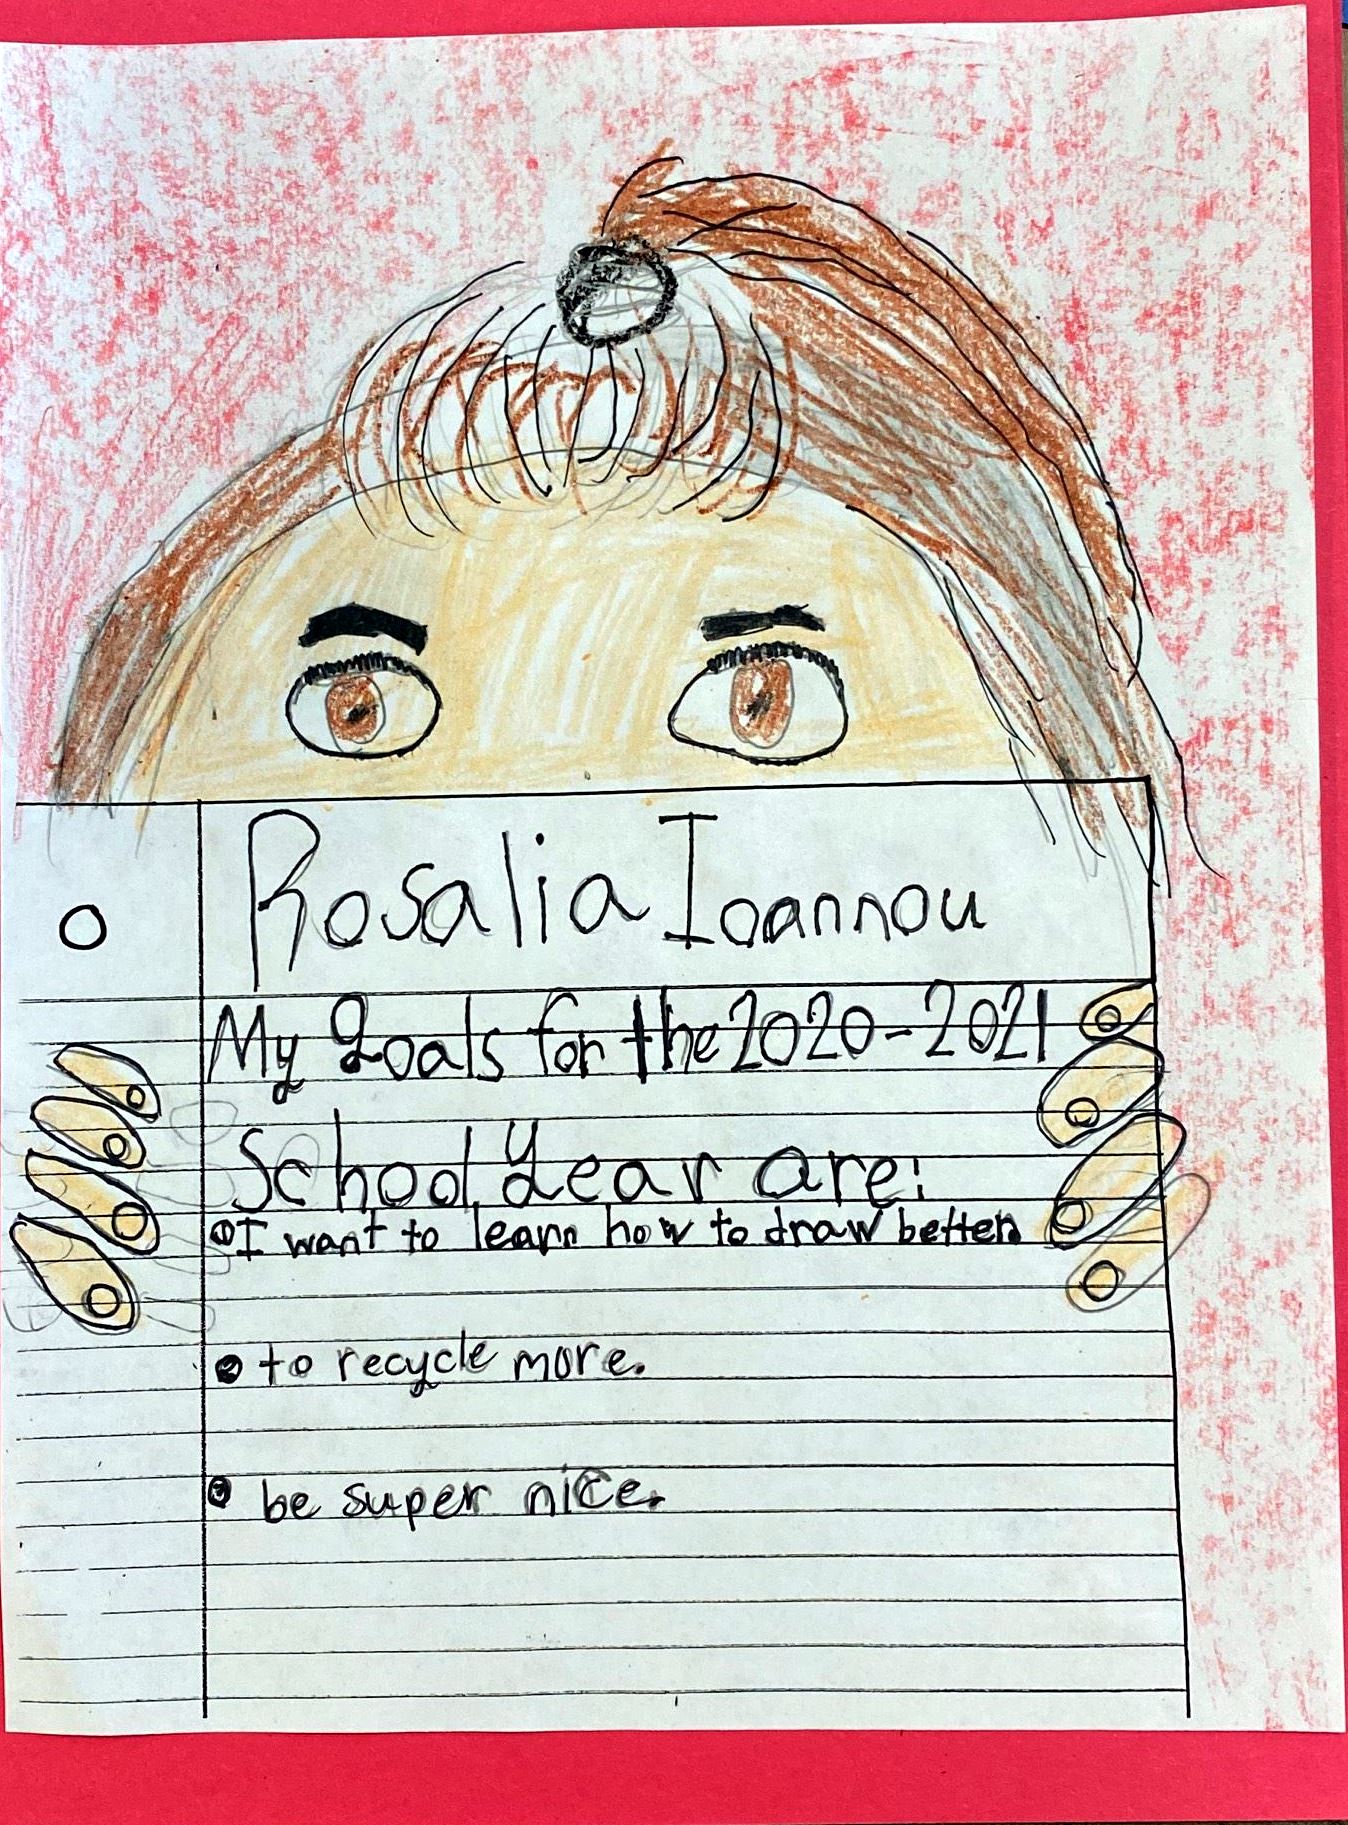 Rosalia Ioannou
My goals for the 2020-2021
School year are:
① I want to learn how to draw better.
② to recycle more.
③ be super nice.